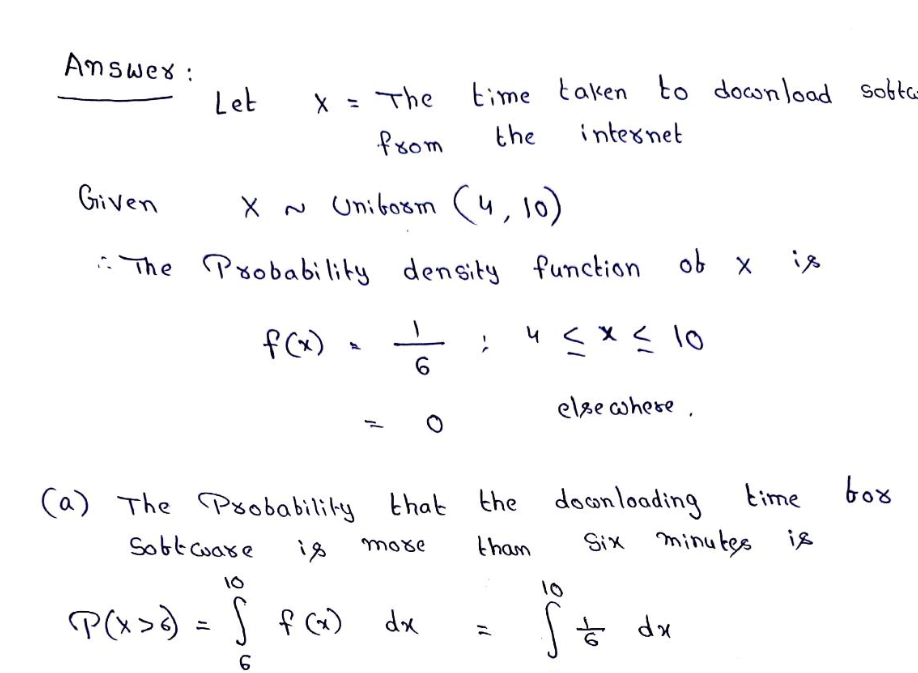 Answer :
Let X = The time taken to download softwa
from the internet
Given X ~ Uniform (4, 10)
∴ The Probability density function of x is
f(x) = 1/6 ; 4 ≤ x ≤ 10
= 0 elsewhere.
(a) The Probability that the downloading time for
Software is more than Six minutes is
P(X>6) = ∫₆¹⁰ f(x) dx = ∫¹⁰ 1/6 dx